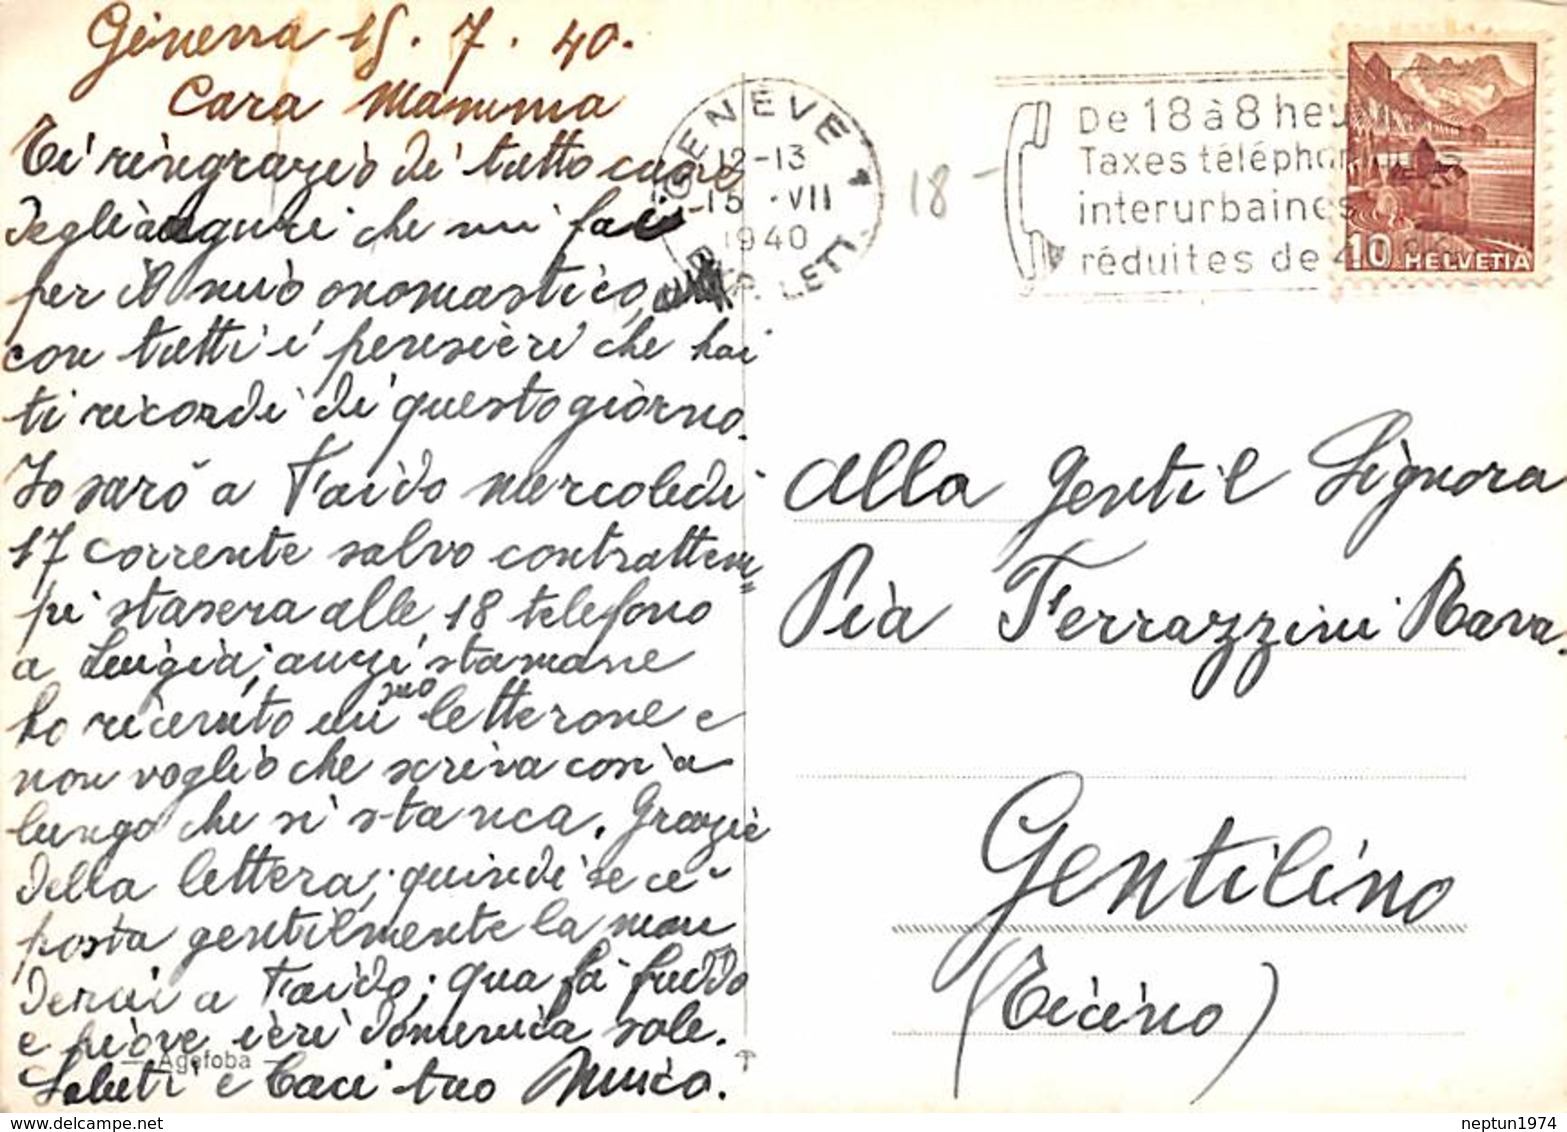 Ginevra 15. 7. 40.
Cara Mamma
Ti ringrazio di tutto cuore
degli auguri che mi fai
per il mio onomastico,
con tutti i pensieri che hai
ti ricordi di questo giorno.
Io sarò a Faido mercoledì
17 corrente salvo contrattem=
pi stasera alle 18 telefono
a Luigia; anzi stamane
ho ricevuto un suo letterone e
non voglio che scriva così a
lungo che si stanca. Grazie
della lettera; quindi se c'è
posta gentilmente la man
derai a Faido; qua fa freddo
e piove ieri domenica sole.
Saluti e baci tuo
Agefoba
GENÈVE 1
12-13
15.VII
1940
EXP. LETT.
18 -
De 18 à 8 heures
Taxes téléphoniques
interurbaines
réduites de 4
10 HELVETIA
Alla Gentil Signora
Pia Ferrazzini Rava.
Gentilino
(Ticino)
neptun1974